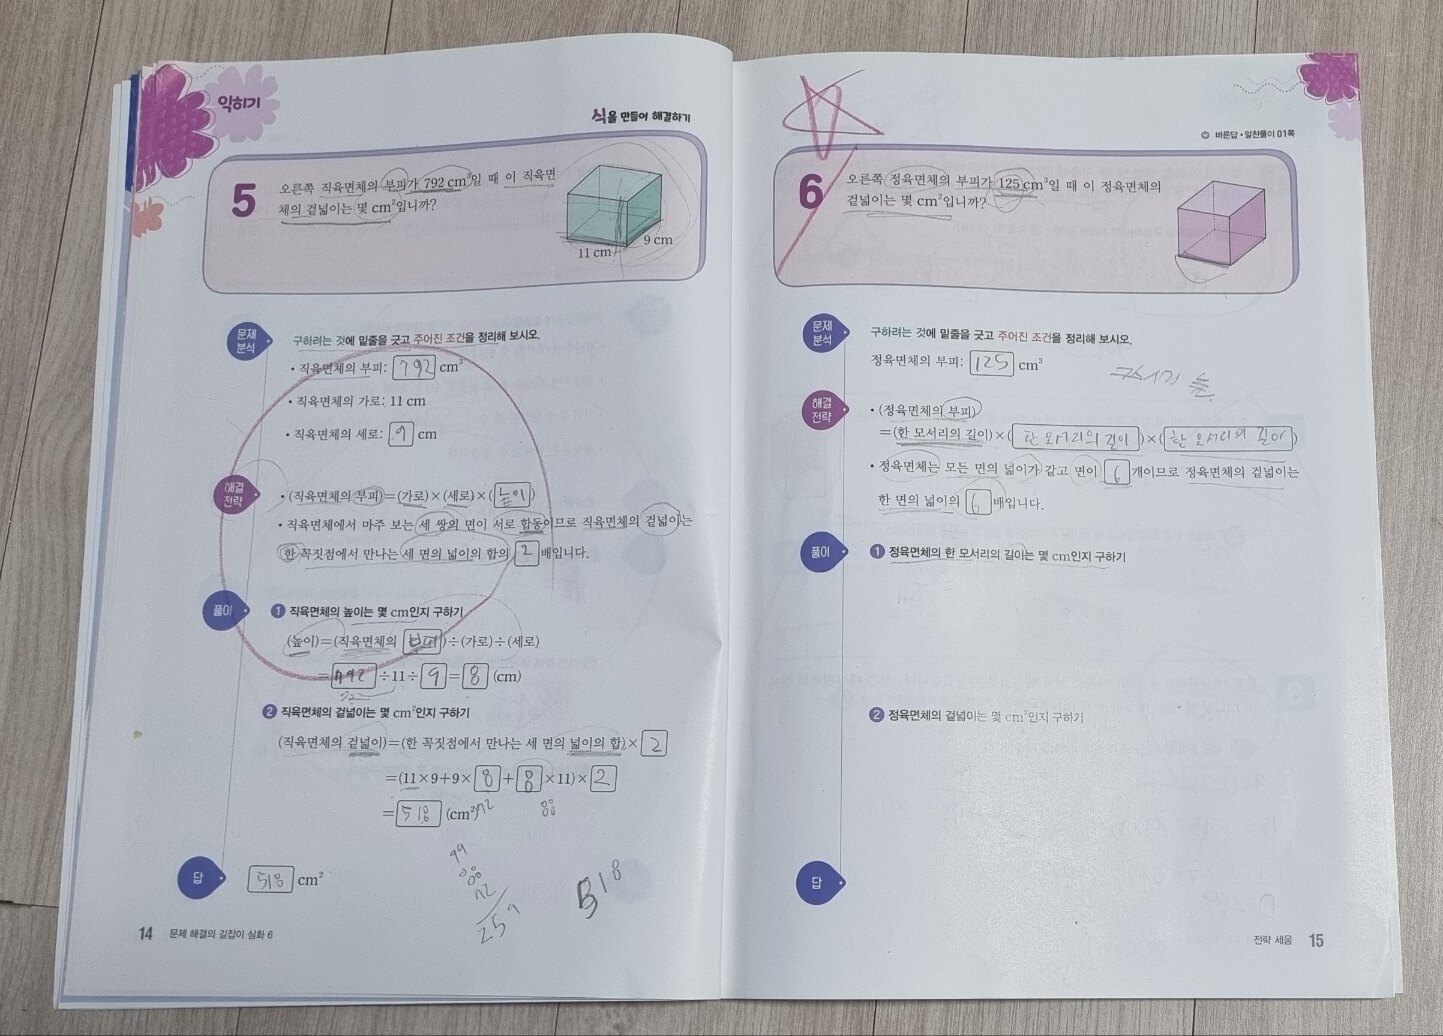 익히기
식을 만들어 해결하기
5
오른쪽 직육면체의 부피가 792 cm³일 때 이 직육면
체의 겉넓이는 몇 cm²입니까?
11 cm
9 cm
문제
분석
구하려는 것에 밑줄을 긋고 주어진 조건을 정리해 보시오.
• 직육면체의 부피: 792 cm³
• 직육면체의 가로: 11 cm
• 직육면체의 세로: 9 cm
해결
전략
• (직육면체의 부피)=(가로)×(세로)×(높이)
• 직육면체에서 마주 보는 세 쌍의 면이 서로 합동이므로 직육면체의 겉넓이는
한 꼭짓점에서 만나는 세 면의 넓이의 합의 2 배입니다.
풀이
1 직육면체의 높이는 몇 cm인지 구하기
(높이)=(직육면체의 부피)÷(가로)÷(세로)
=792÷11÷9=8 (cm)
72
2 직육면체의 겉넓이는 몇 cm²인지 구하기
(직육면체의 겉넓이)=(한 꼭짓점에서 만나는 세 면의 넓이의 합)×2
=(11×9+9×8+8×11)×2
=518 (cm²)
72
88
99
88
72
259
518
답
518 cm²
14 문제 해결의 길잡이 심화 6
바른답 • 알찬풀이 01쪽
6
오른쪽 정육면체의 부피가 125 cm³일 때 이 정육면체의
겉넓이는 몇 cm²입니까?
문제
분석
구하려는 것에 밑줄을 긋고 주어진 조건을 정리해 보시오.
정육면체의 부피: 125 cm³
해결
전략
• (정육면체의 부피)
=(한 모서리의 길이)×(한 모서리의 길이)×(한 모서리의 길이)
• 정육면체는 모든 면의 넓이가 같고 면이 6 개이므로 정육면체의 겉넓이는
한 면의 넓이의 6 배입니다.
풀이
1 정육면체의 한 모서리의 길이는 몇 cm인지 구하기
2 정육면체의 겉넓이는 몇 cm²인지 구하기
답
전략 세움 15